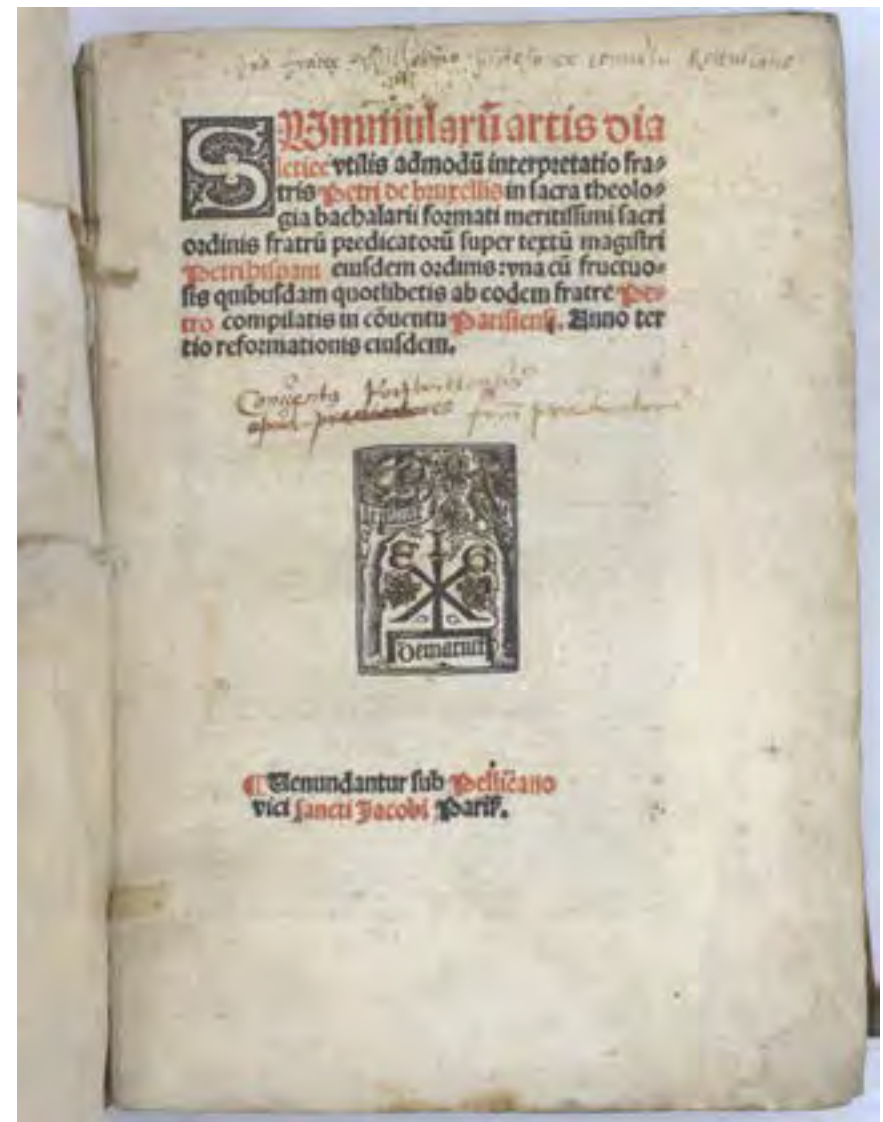 SUmmularũ artis dia
lectice vtilis admodũ interpretatio fra⸗
tris Petri de bruxellis in sacra theolo⸗
gia bachalarii formati meritissimi sacri
ordinis fratrũ predicatorũ super textũ magistri
Petri hispani eiusdem ordinis: vna cũ fructuo⸗
sis quibusdam quotlibetis ab eodem fratre Pe⸗
tro compilatis in cõuentu Parisiensi. Anno ter
tio reformationis eiusdem.
Conventus
apud predicatores
E I G
Demarnef
¶ Venundantur sub Pellicano
vici sancti Jacobi Parisꝭ.